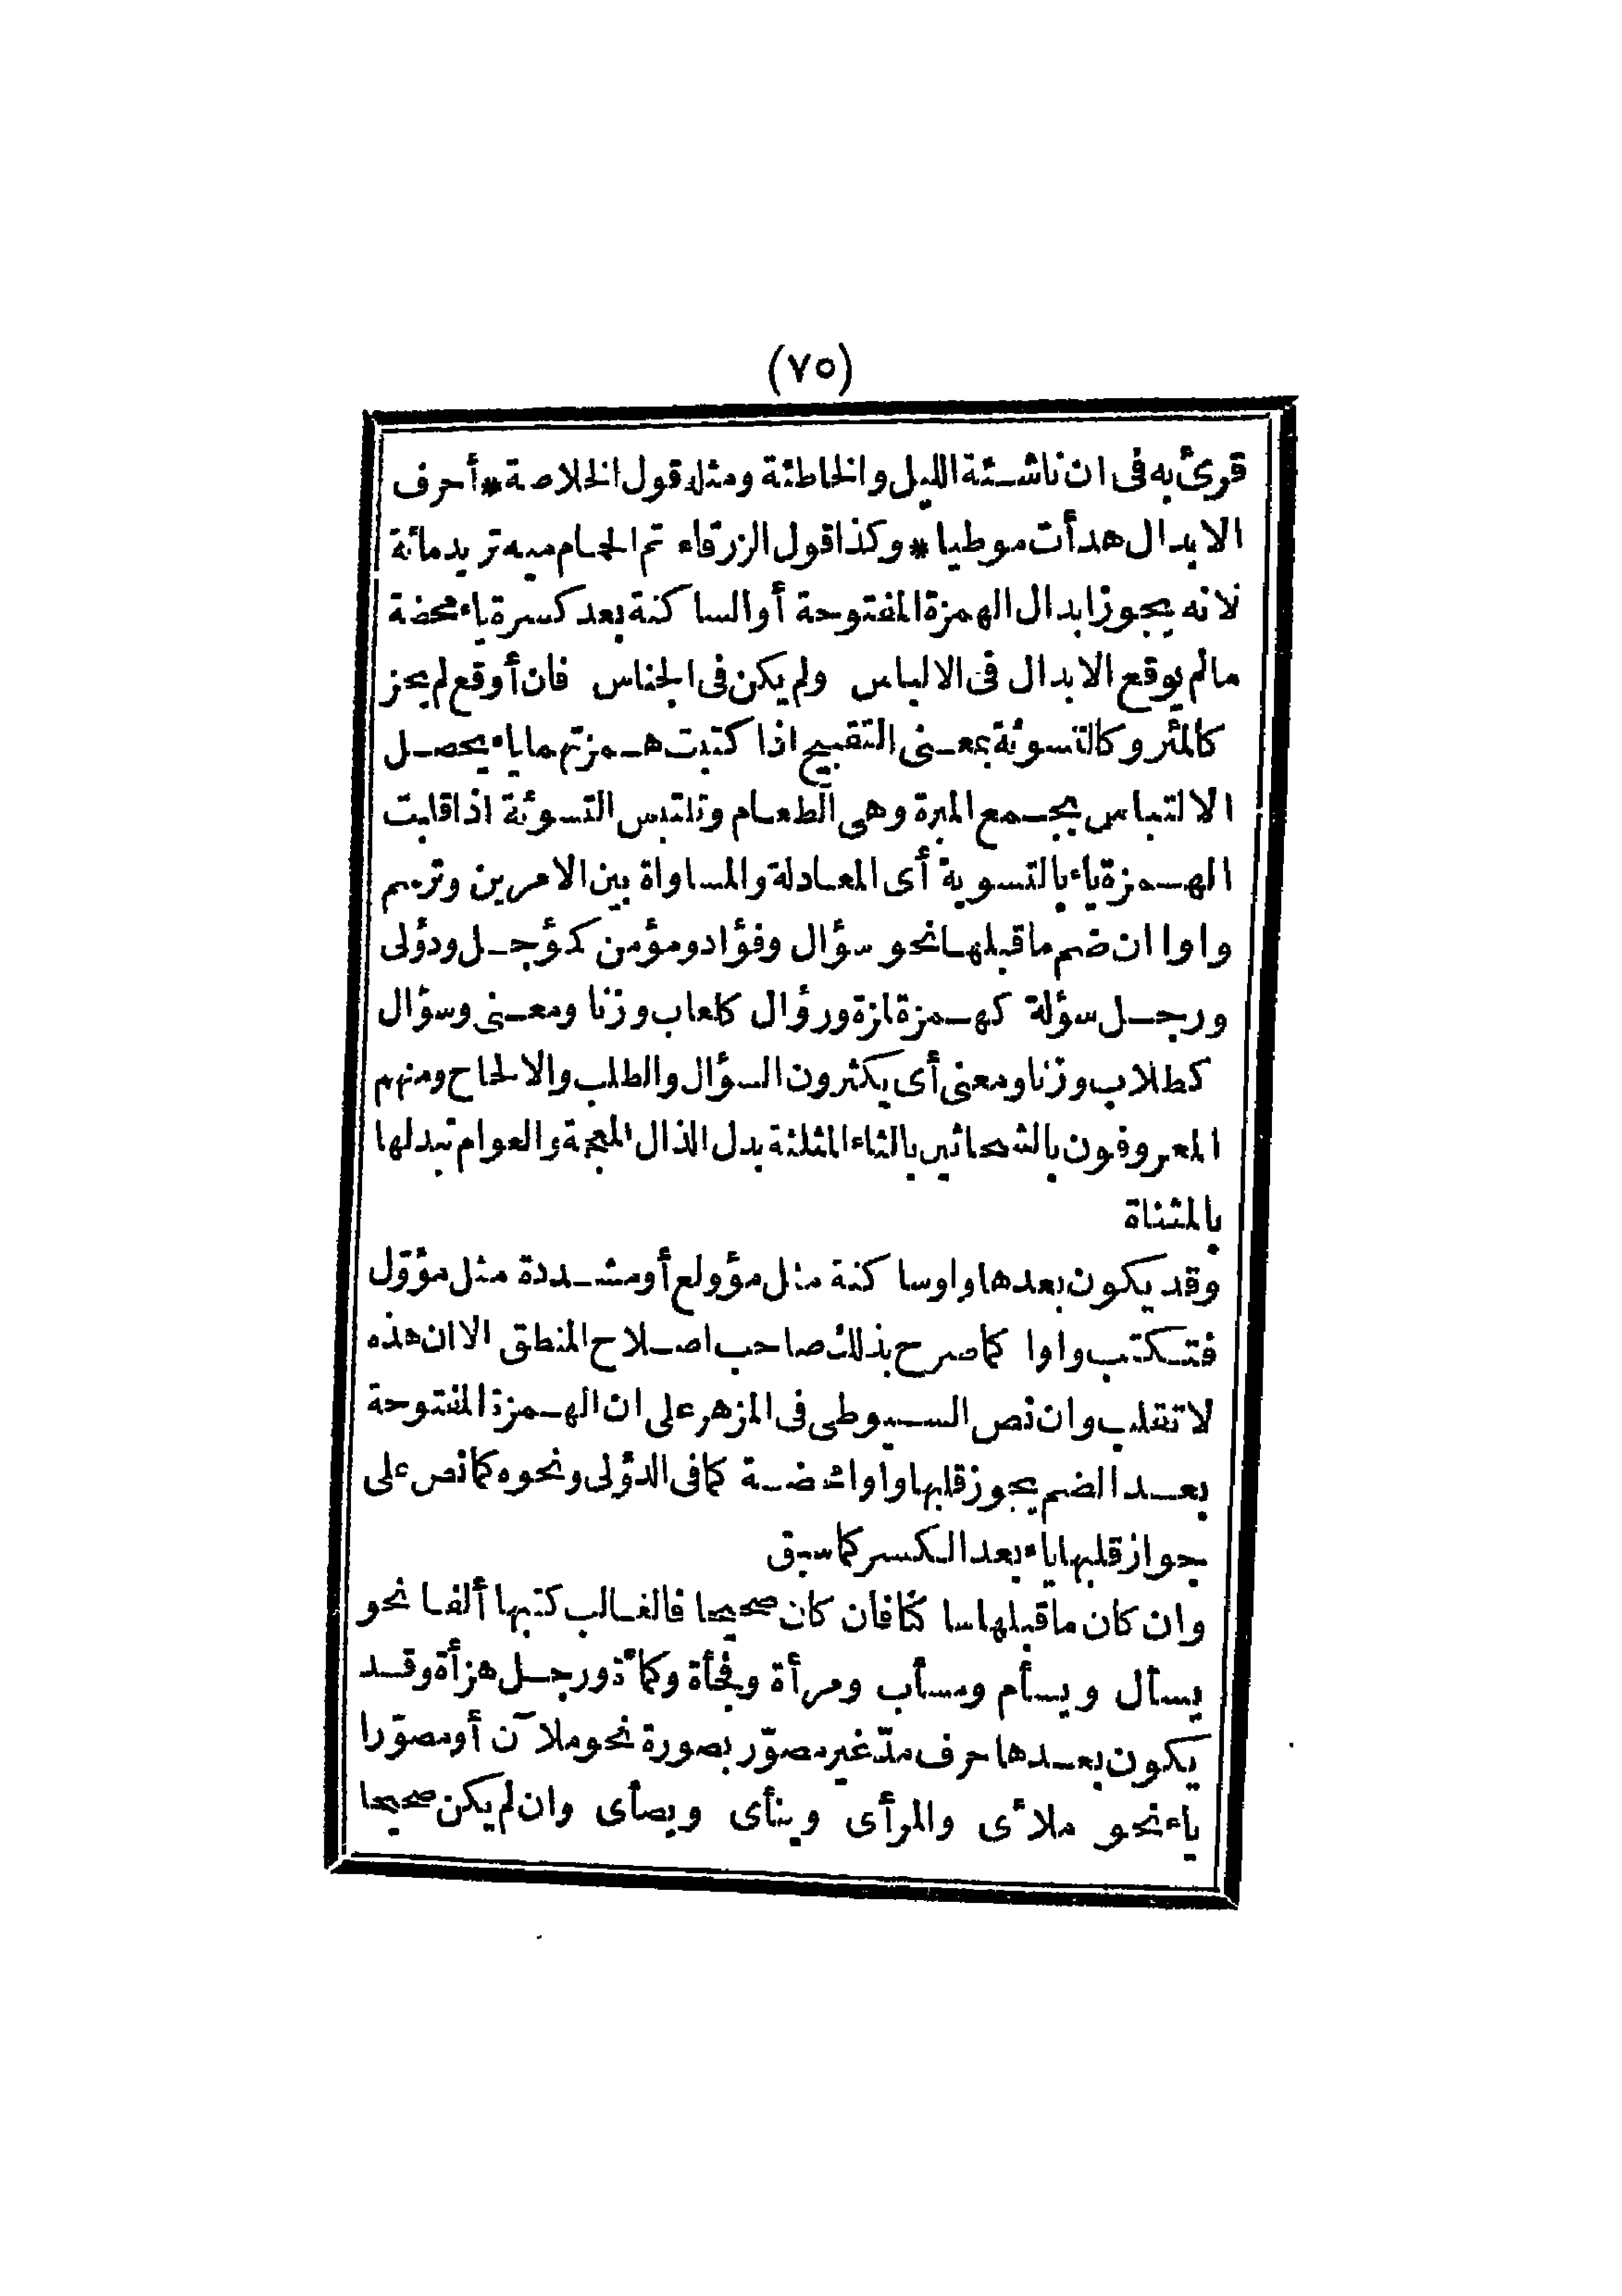 (٧٥)
قرئ به فى ان ناشئة الليل والخاطئة ومثله قول الخلاصة * أحرف
الابدال هدأت موطيا * وكذا قول الزرقاء تم الحمام ميه تريد مائة
لانه يجوز ابدال الهمزة المفتوحة أو الساكنة بعد كسرة ياء محضة
مالم يوقع الابدال فى الالباس ولم يكن فى الجناس فان أوقع لم يجز
كالمئر وكالتسوئة بمعنى التقبيح اذا كتبت همزتهما ياء يحصل
الالتباس بجمع الميرة وهى الطعام وتلتبس التسوئة اذا قلبت
الهمزة ياء بالتسوية أى المعادلة والمساواة بين الامرين وترسم
واوا ان ضم ماقبلها نحو سؤال وفؤاد ومؤمن كمؤجل ودؤلى
ورجل سؤلة كهمزة لمزة ورؤال كلعاب وزنا ومعنى وسؤال
كطلاب وزنا ومعنى أى يكثرون السؤال والطلب والالحاح ومنهم
المعروفون بالشحاثين بالثاء المثلثة بدل الذال المعجمة والعوام تبدلها
بالمثناة
وقد يكون بعدها واو ساكنة مثل مؤولع أو مشددة مثل مؤوّل
فتكتب واوا كما صرح بذلك صاحب اصلاح المنطق الا ان هذه
لا تقلب وان نص السيوطى فى المزهر على ان الهمزة المفتوحة
بعد الضم يجوز قلبها واوا محضة كما فى الدؤلى ونحوه كما نص على
جواز قلبها ياء بعد الكسر كما سبق
وان كان ماقبلها ساكنا فان كان صحيحا فالغالب كتبها ألفا نحو
يسأل ويسأم ومسأب ومرأة وفجأة وكمأة ورجل هزأة وقد
يكون بعدها حرف مدّ غير مصوّر بصورة نحو ملآن أو مصوّرا
ياء نحو ملأى والمرأى وينأى ويصأى وان لم يكن صحيحا